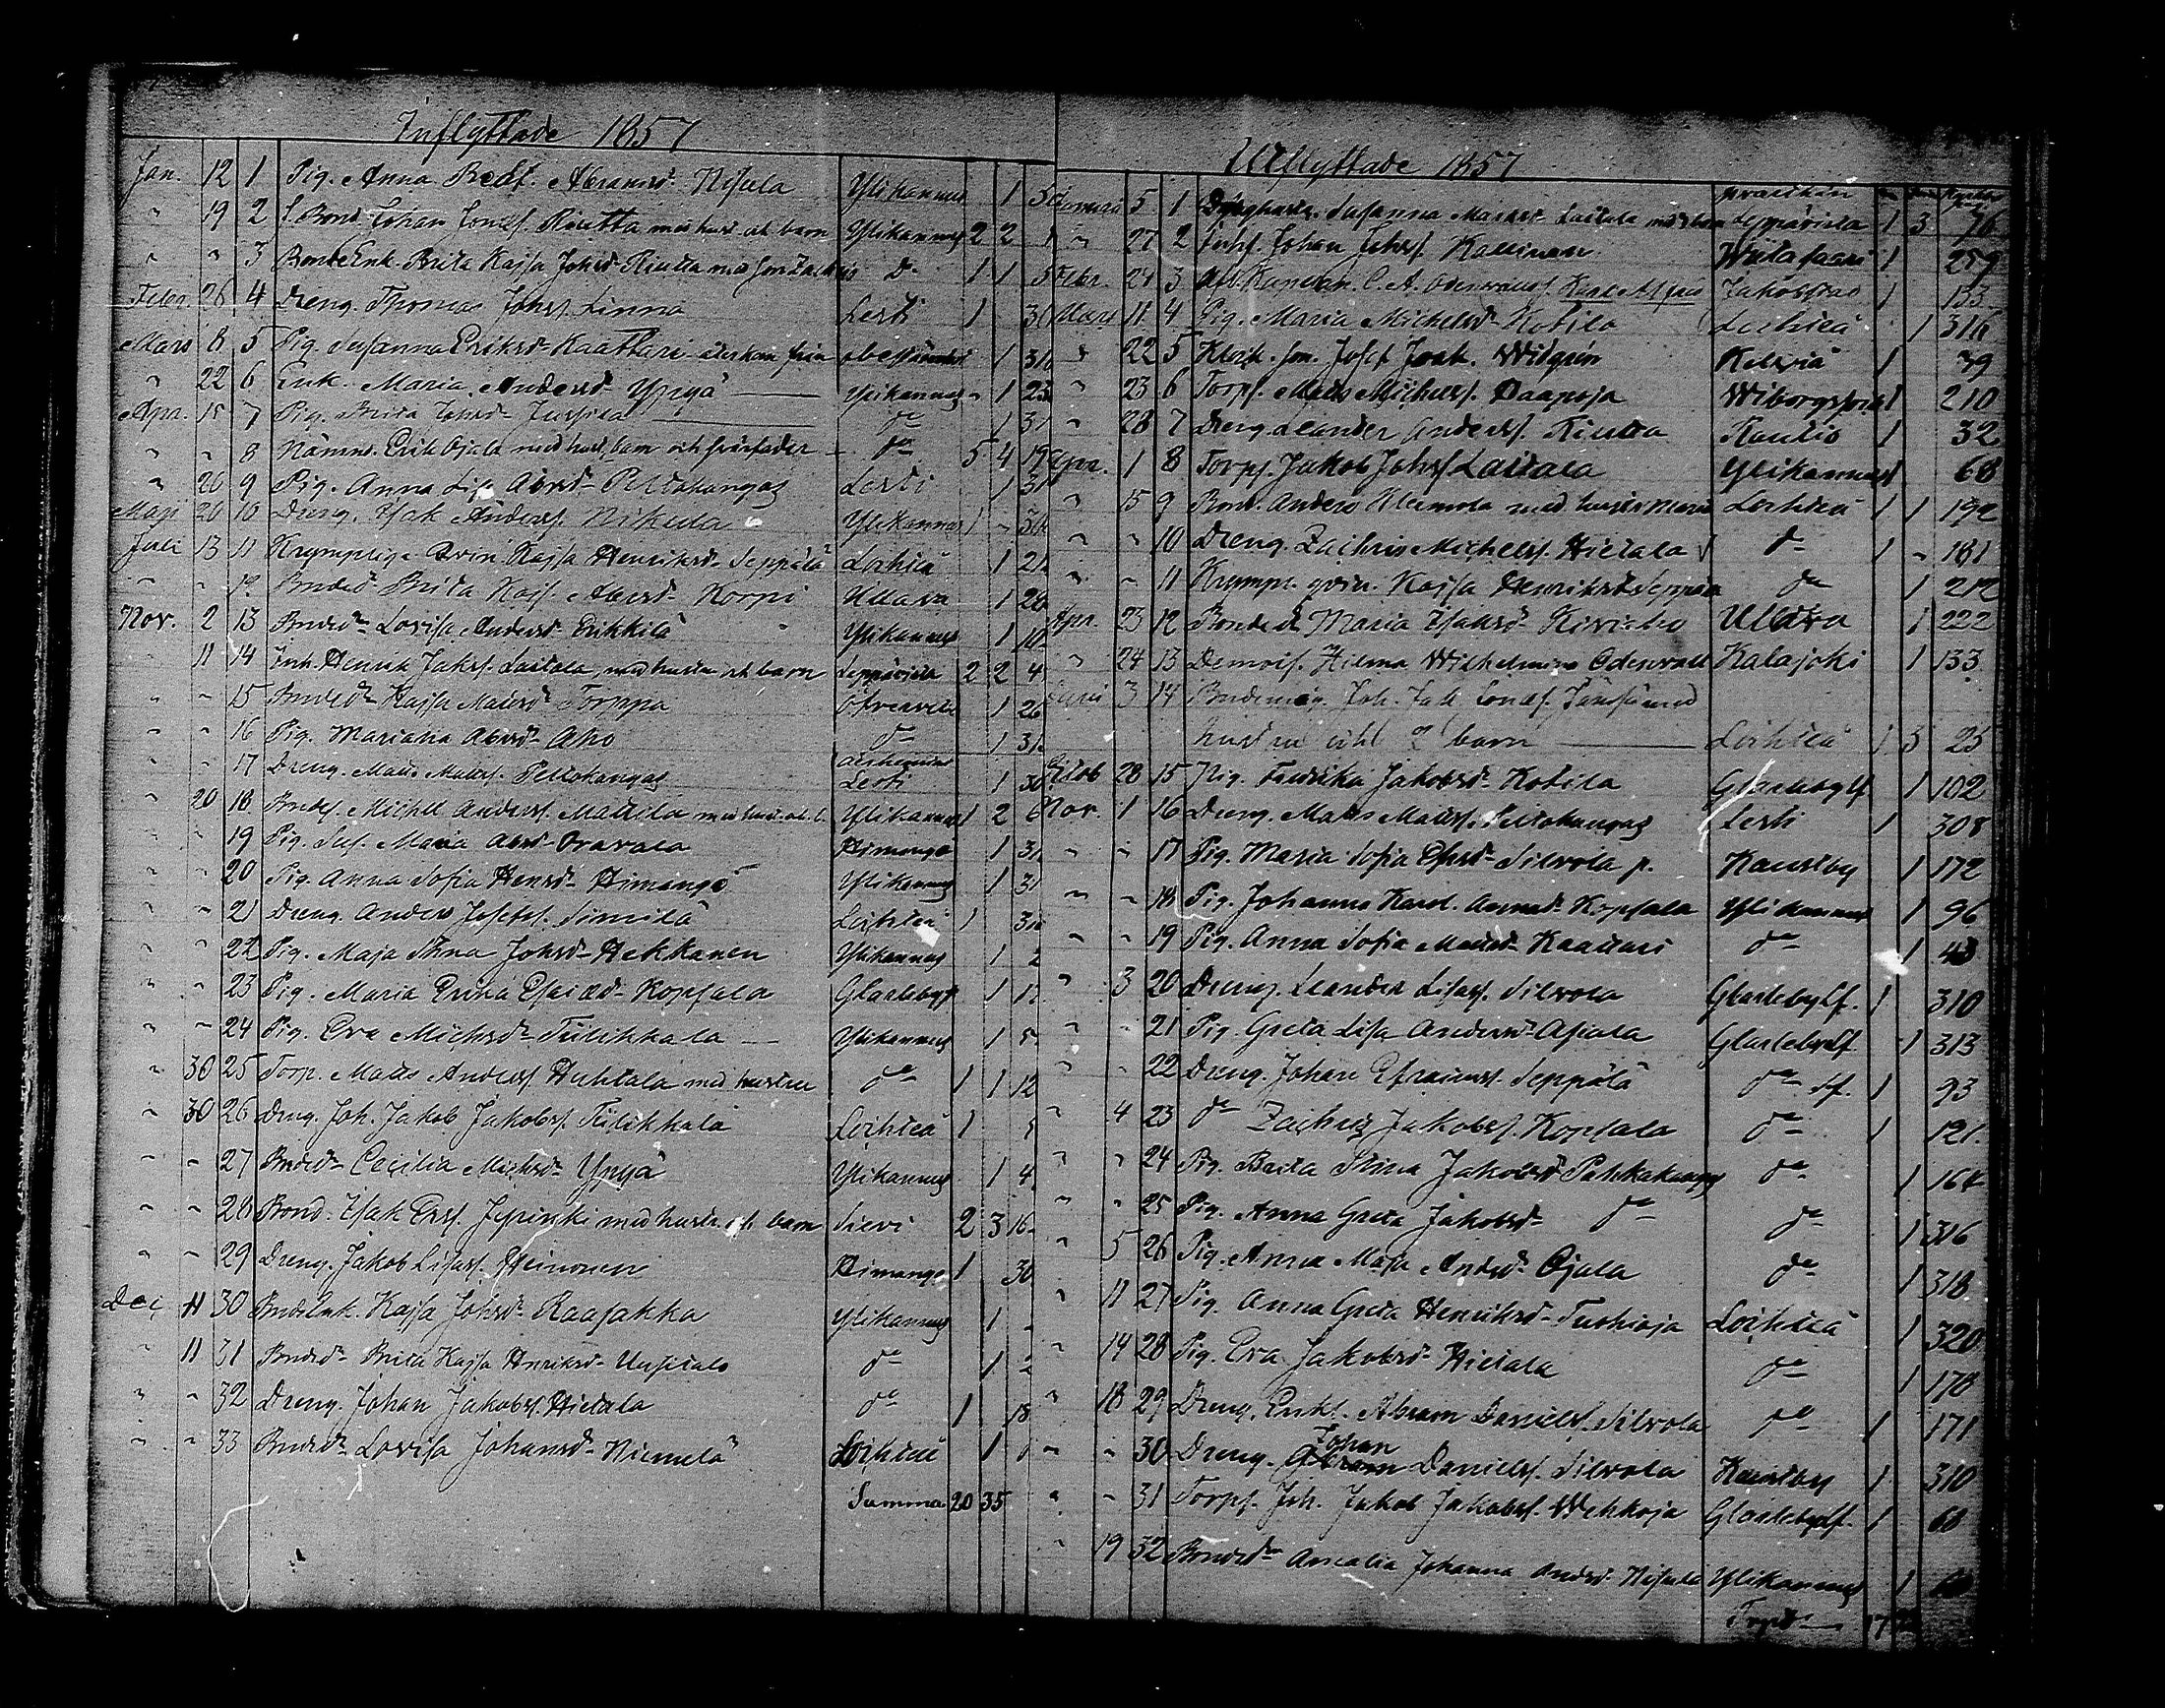 Inflyttade 1857
Jan. 12 1 Pig. Anna Abramsd. Nisula Ylikannus 1
" 19 2 f. Bond. Johan Rautta med hust och barn Ylikannus 2 2
" " 3 BondeEnk. Brita Kajsa Johsd. med son do 1 1
Febr. 26 4 Dreng. Thomas Johss. Linna Lesti 1
Mars 8 5 Pig. Susanna Eriksd. Kaattari återkom från 1
" 22 6 Enk. Maria Andersd. Yrjyä Ylikannus " 1
Apr. 15 7 Pig. Brita Johsd. Jussila do 1
" " 8 Nämnd. Erik Ojala med hust, barn och do 5 4 19
" 20 9 Pig. Anna Lisa Abrsd. Peltokangas Lesti 1
Maji 20 10 Dreng. Isak Anderss. Nikula Ylikannus 1 "
Juli 13 11 Krymplig. Kajsa Henriksd. Seppälä Lochteå 1
" " 12 Bonded. Brita Kajs. Abrsd. Korpi Ullava 1
Nov. 2 13 Bonded. Lovisa Andersd. Erikkilä Ylikannus 1
11 14 Inh. Henrik Jakss. Laitala, med hustru och barn Leppävirta 2 2 4
" " 15 Bonded. Kajsa Matsd. Torppa Öfvervetil 1 26
" " 16 Pig. Mariana Abrsd. Aho do 1 31
" " 17 Dreng. Matts Matss. Peltokangas Lesti 1
" 20 18 Bondes. Michel Anderss. Mattila med hust. och b. Ylikannus 1 2 6
19 Pig. Sus. Maria Abrsd. Oravala Himango 1 31
" " 20 Pig. Anna Sofia Henrsd. Himango Ylikannus 1 31
" " 21 Dreng. Anders Josefss. Similä Lochteå 1
22 Pig. Maja Stina Johsd. Hekkanen Ylikannus 1 2
" " 23 Pig. Maria Erika Esaiæd. Kopsala Glarleby 1
" " 24 Pig. Eva Michsd. Tülikkala Ylikannus 1 5
" 30 25 Torp. Matts Anderss. Huhtala med hustru do 1 1 12
" 30 26 Dreng. Joh. Jakob Jakobss. Tülikkala Lochteå 1 5
" " 27 Bonded. Cecilia Michsd. Yrjyä Ylikannus 1 4
" " 28 Bond. Isak Erss. Jypinki med hustr. och barn Sievi 2 3 16
" " 29 Dreng. Jakob Lisass. Heinonen Himango 1 30
Dec. 11 30 Bondeenk. Kajsa Johsd. Raasakka Ylikannus 1 "
11 31 Bonded. Brita Kajsa Henriksd. Uusitalo do 1 2
" " 32 Dreng. Johan Jakobss. Hietala do 1 18
" " 33 Bonded. Lovisa Johansd. Niemelä Lochteå 1 1
Summa 20 35
Utflyttade 1857
Januari 5 1 Susanna Laitala med barn Leppävirta 1 3 76
" 27 2 Johan Johss. Kallinen Wiitasaari 1 259
Febr. 24 3 C. A. Odenwall Jakobstad 1 133
Mars 11 4 Pig. Maria Michelsd. Kotila Lochteå 1 316
" 22 5 Klock. son. Josef Joak. Widgrén Kelviå 1 79
" 23 6 Torps. Matts Michelss. Raapoja Wiborgs 1 210
" 28 7 Dreng. Leander Anderss. Riutta Rautio 1 32
Apr. 1 8 Torps. Jakob Johss. Laitala Ylikannus 1 68
" 15 9 Bond. Anders Klemola med hustr. Maria Lochteå 1 1 192
" " 10 Dreng. Zachris Michelss. Hietala do 1 " 181
" " 11 Krympl. qvin. Kajsa Henriksd. Seppälä do 1 212
Apr. 23 12 Bonded. Maria Isaksd. Kiviaho Ullava 1 222
" 24 13 Demois. Hilma Wilhelmina Odenwall Kalajoki 1 133
3 14 Bondemåg. Joh. med
hustru och 2 barn Lochteå 1 3 25
Octob 28 15 Pig. Fredrika Jakobsd. Kotila Glarleby lf 1 102
Nov. 1 16 Dreng. Matts Matss. Peltokangas Lesti 1 308
" " 17 Pig. Maria Sofia Silvola p. Kaustby 1 172
" " 18 Pig. Johanna Karol. Kopsala Ylikannus 1 96
" " 19 Pig. Anna Sofia Mattsd. Kaattari do 1 43
" 3 20 Dreng. Leander Lisass. Silvola Glarleby lf. 1 310
" " 21 Pig. Greta Lisa Andersd. Glarleby lf 1 313
" " 22 Dreng. Johan Efraimss. Seppälä do lf. 1 93
" 4 23 do Zachris Jakobss. Kopsala do 1 121
" " 24 Pig. Brita Stina Jakobsd. Pahkakangas do 1 164
" " 25 Pig. Anna Greta Jakobsd. do do 1 316
" 5 26 Pig. Anna Maja Andsd. Ojala do 1 318
" 11 27 Pig. Anna Greta Henriksd. Tuohioja Lochteå 1 320
" 14 28 Pig. Eva Jakobsd. Hietala do 1 178
" 18 29 Dreng. Enks. Abram Danielss. Silvola do 1 171
" " 30 Dreng. Johan Danielss. Silvola Kaustby 1 310
" " 31 Torps. Joh. Jakob Jakobss. Wehkoja Glarleby lf. 1 68
" 19 32 Bonded. Amalia Johanna Andsd. Nisula Ylikannus 1
17